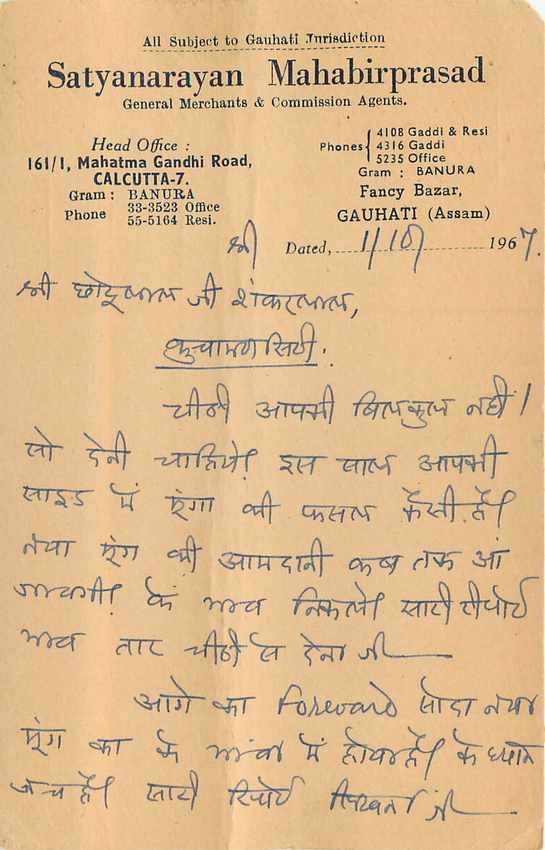 All Subject to Gauhati Jurisdiction
Satyanarayan Mahabirprasad
General Merchants & Commission Agents.
Head Office :
161/1, Mahatma Gandhi Road,
CALCUTTA-7.
Gram : BANURA
Phone 33-3523 Office
55-5164 Resi.
Phones 4108 Gaddi & Resi
4316 Gaddi
5235 Office
Gram : BANURA
Fancy Bazar,
GAUHATI (Assam)
श्री
Dated, 1/10/ 1967.
श्री छोटूलाल जी शंकरलाल,
कुचामण सिटी.
चीठी आपकी बिलकुल नहीं।
सो देनी चाहिये। इस साल आपकी
साइड में मूंगा की फसल कैसी है।
नया मूंग की आमदानी कब तक आ
जावगी। के भाव निकले। सारी रीपोर्ट
भाव तार चीठी से देना जी
आगे का Forward सोदा नया
मूंग का के भावां में होवा है। के ध्यान
जच है। सारी रिपोर्ट लिखना जी